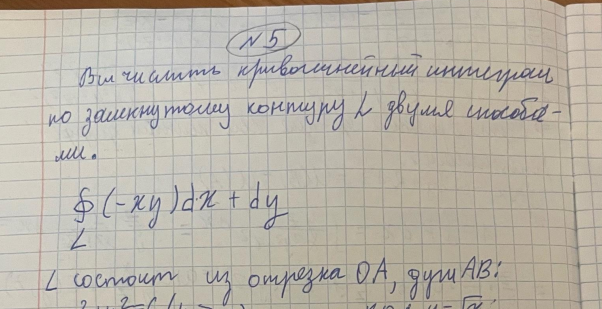 N 5
Вычислить криволинейный интеграл
по замкнутому контуру L двумя способа-
ми.
∮ (-xy)dx + dy
L
L состоит из отрезка OA, дуги AB: